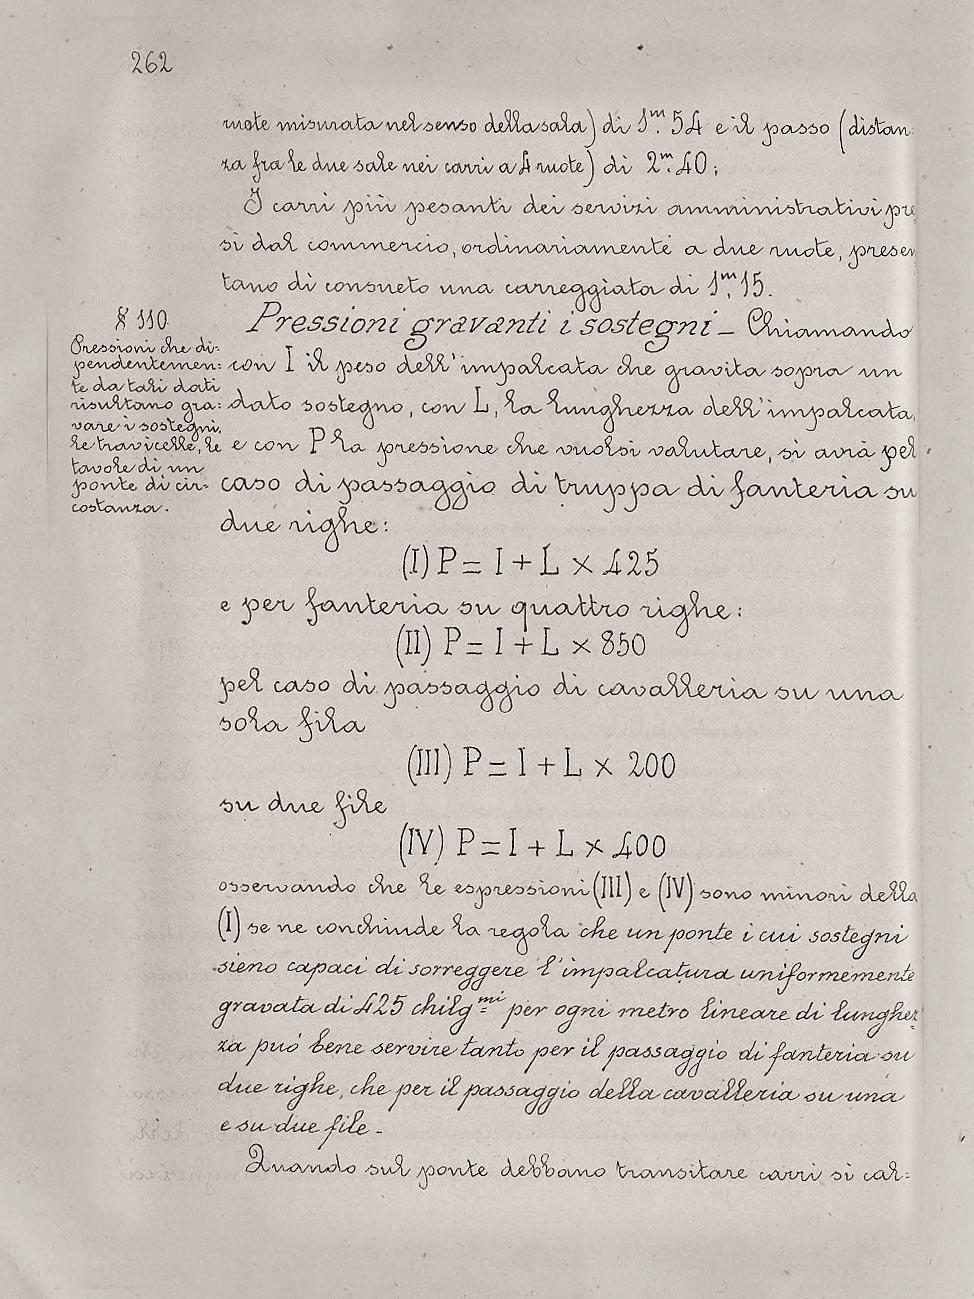 262
ruote misurata nel senso della sala) di 1m. 54 e il passo (distan:
za fra le due sale nei carri a 4 ruote) di 2m. 40;
I carri più pesanti dei servizi amministrativi pre
si dal commercio, ordinariamente a due ruote, presen
tano di consueto una carreggiata di 1m. 15.
§ 110.
Pressioni che di:
pendentemen:
te da tali dati
risultano gra:
vare i sostegni,
le travicelle, le
tavole di un
ponte di cir:
costanza.
Pressioni gravanti i sostegni_ Chiamando
con I il peso dell'impalcata che gravita sopra un
dato sostegno, con L, la lunghezza dell'impalcata,
e con P la pressione che vuolsi valutare, si avrà pel
caso di passaggio di truppa di fanteria su
due righe:
(I) P = I + L × 425
e per fanteria su quattro righe:
(II) P = I + L × 850
pel caso di passaggio di cavalleria su una
sola fila
(III) P = I + L × 200
su due file
(IV) P = I + L × 400
osservando che le espressioni (III) e (IV) sono minori della
(I) se ne conchiude la regola che un ponte i cui sostegni
sieno capaci di sorreggere l'impalcatura uniformemente
gravata di 425 chilg.mi per ogni metro lineare di lunghez
za può bene servire tanto per il passaggio di fanteria su
due righe, che per il passaggio della cavalleria su una
e su due file_
Quando sul ponte debbano transitare carri si cal: